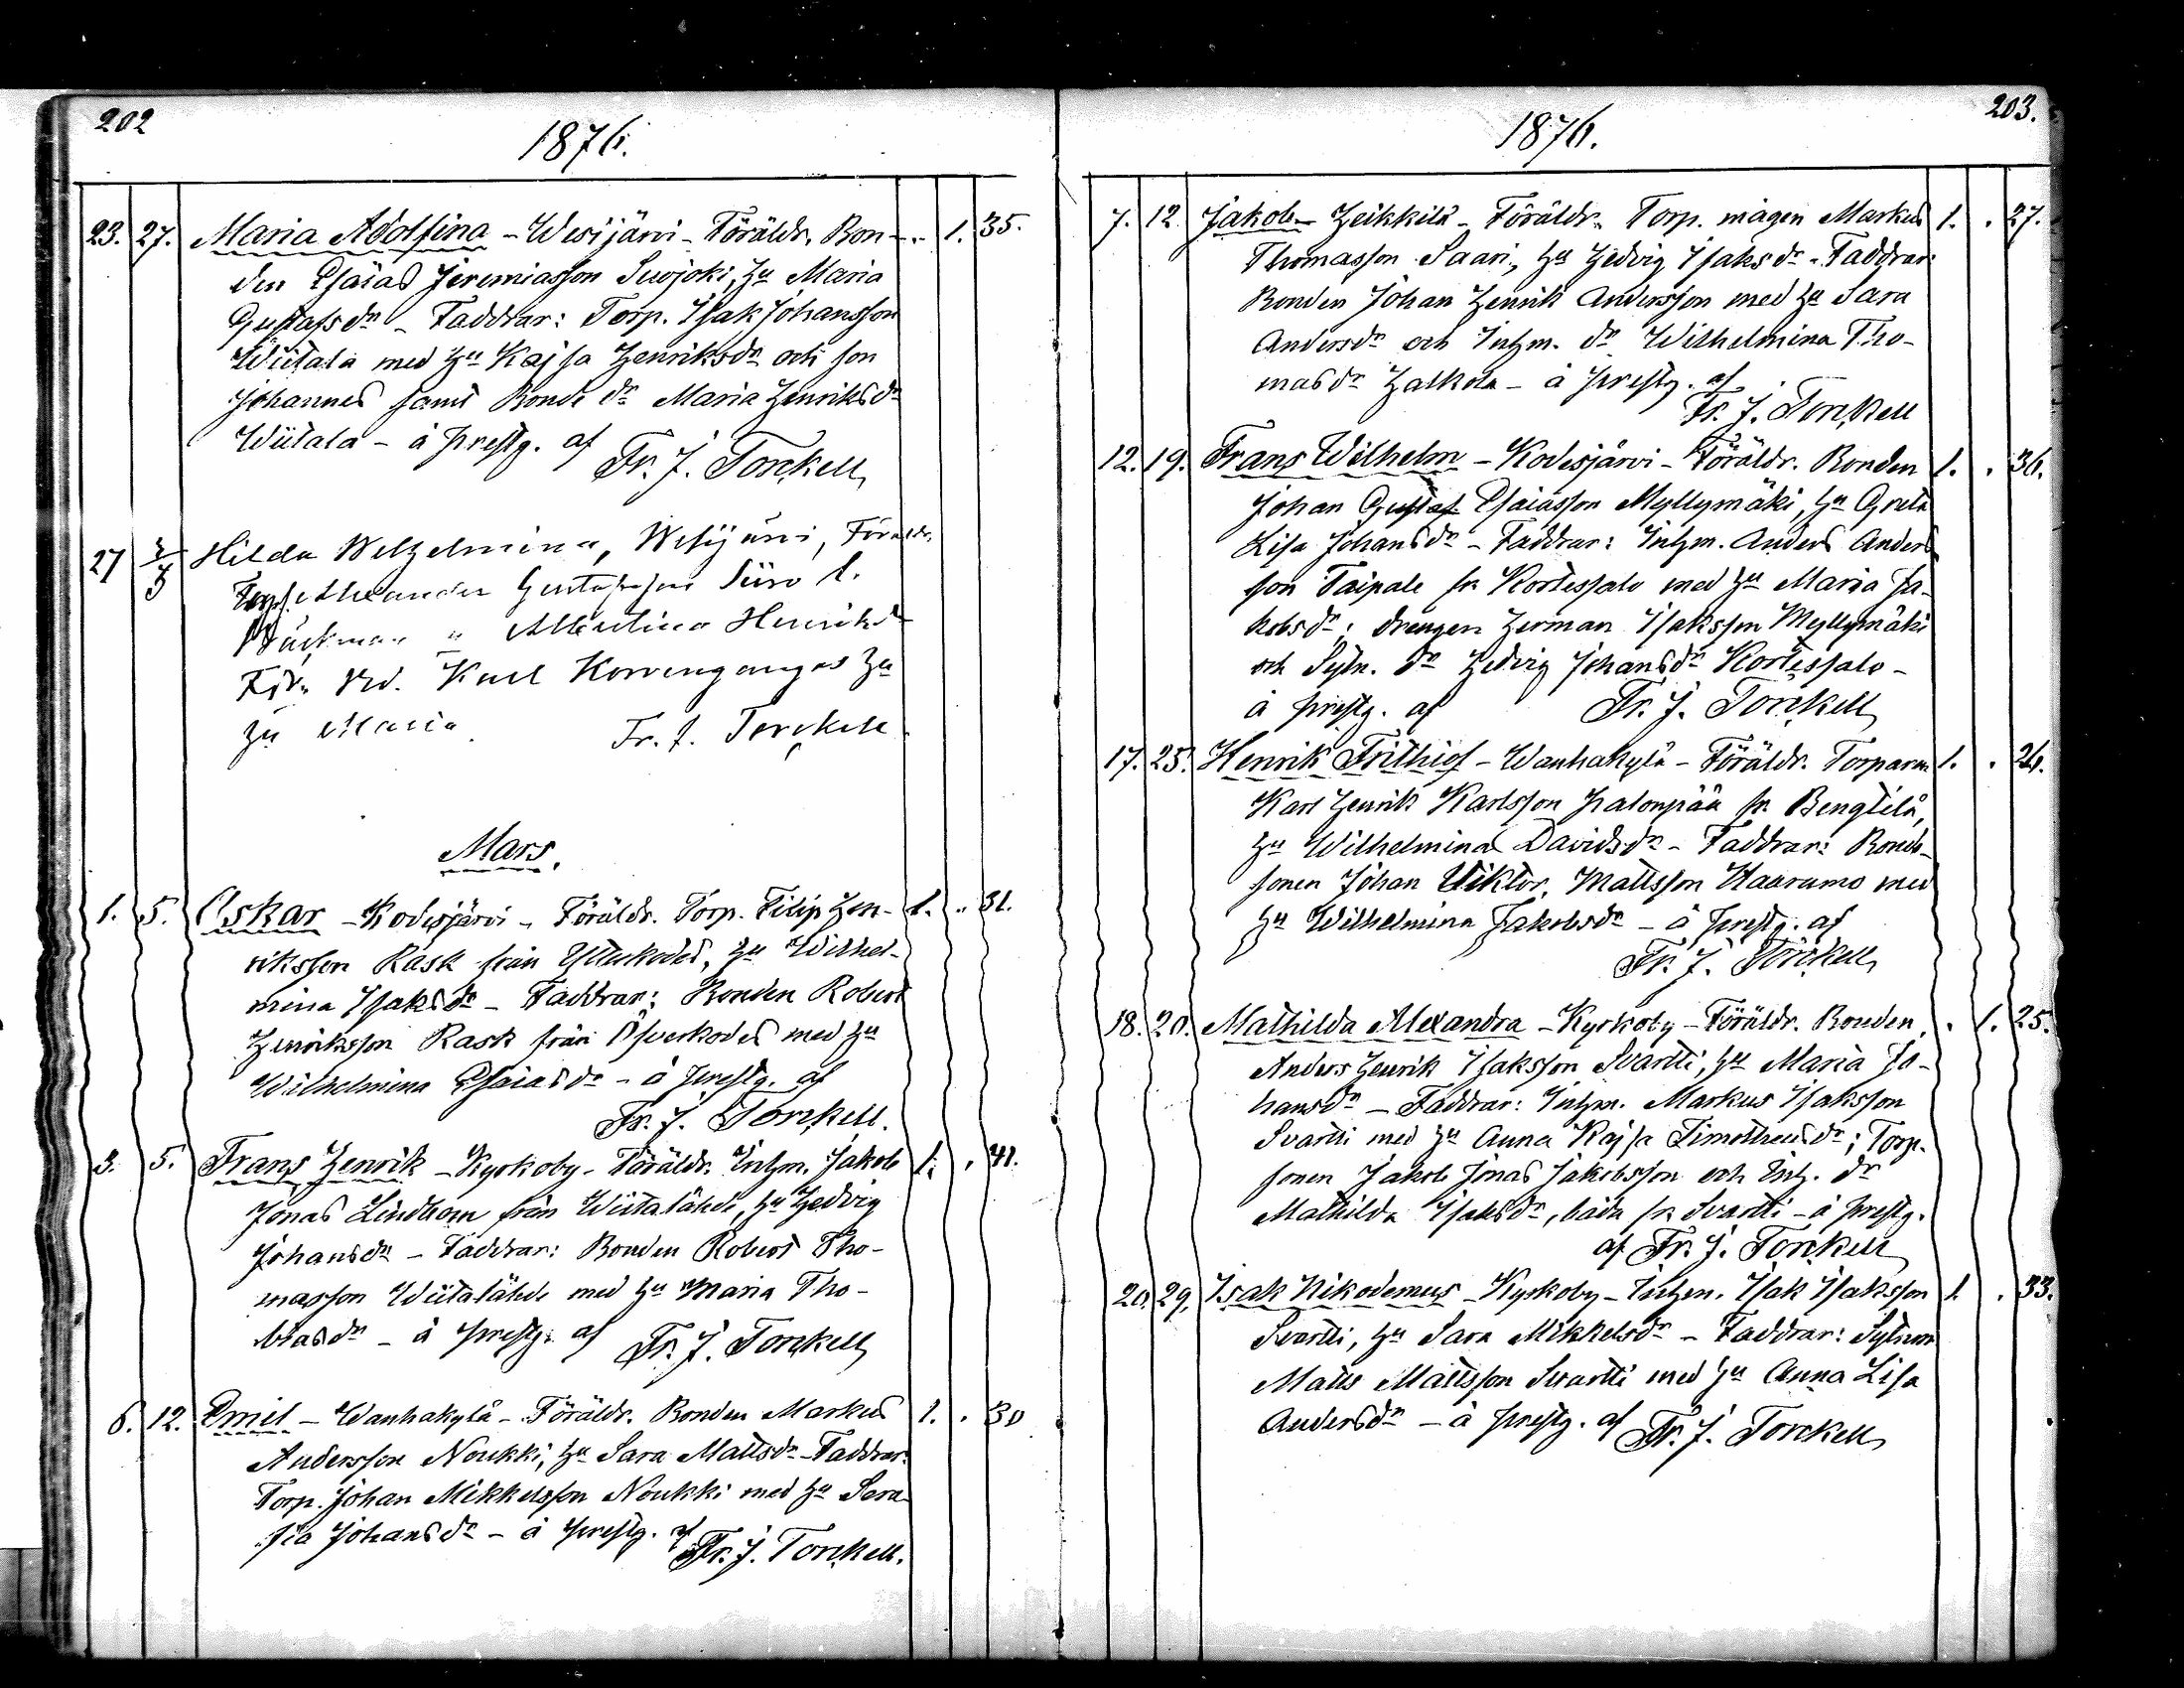 202
1876.
23. 27. Maria Adolfina - Wesijärvi - Föräldr. Bon- .. 1. 35.
den Esaias Jeremiasson Suojoki, Hu Maria
Gustafsdr - Faddrar: Torp. Isak Johansson
Wiitala med Hu Kajsa Henriksdr och son
Johannes samt Bonde dr Maria Henriksdr
Wiitala - å prestg. af Fr. J. Torckell
27 Hilda Wilhelmina, Wesijärvi, Föräldr.
Alexander Gustafsson Siiro l.
Bäckman Hu Albertina Henriksdr
Bd. Karl Korvenganges Hu
Hu Maria Fr. J. Torckell
Mars.
1. 5. Oskar - Kodesjärvi - Föräldr. Torp. Filip Hen- 1. .. 31.
riksson Rask från Ytterkodes, Hu Wilhel-
mina Isaksdr - Faddrar: Bonden Robert
Henriksson Rask från Öfverkodes med Hu
Wilhelmina Esaiasdr - å prestg. af
Fr. J. Torckell.
3. 5. Frans Henrik - Kyrkoby - Föräldr. Inhm. Jakob 1. . 41.
Jonas Lindhorn från Wiitalähde, Hu Hedvig
Johansdr - Faddrar: Bonden Robert Tho-
masson Wiitalähde med Hu Maria Tho-
masdr - å prestg. af Fr. J. Torckell
6. 12. Emil - Wanhakylä - Föräldr. Bonden Markus 1. . 30
Andersson Noukki, Hu Sara Mattsdr - Faddrar:
Torp. Johan Mikkelsson Noukki med Hu Sera-
fia Johansdr - å prestg. af
Fr. J. Torckell.
203.
1876.
7. 12 Jakob - Heikkilä - Föräldr. Torp. mågen Markus 1. . 27.
Thomasson Saari, Hu Hedvig Isaksdr - Faddrar:
Bonden Johan Henrik Andersson med Hu Sara
Andersdr och Inhm. dr Wilhelmina Tho-
masdr Halkola - å prestg. af
Fr. J. Torckell
12. 19. Frans Wilhelm - Kodesjärvi - Föräldr. Bonden 1. . 36.
Johan Gustaf Esaiasson Myllymäki, Hu Greta
Lisa Johansdr - Faddrar: Inhm. Anders Anders
son Taipale fr. Kortessalo med Hu Maria Ja-
kobsdr; drengen Herman Isaksson Myllymäki
och Sytn. dr Hedvig Johansdr Kortessalo -
å prestg. af Fr. J. Torckell
17. 25. Henrik Frithiof - Wanhakylä - Föräldr. Torparen 1. . 24.
Karl Henrik Karlsson Salonpää fr. Bengtilä,
Hu Wilhelmina Davidsdr - Faddrar: Bonde-
sonen Johan Viktor Mattsson Haaramo med
Hu Wilhelmina Jakobsdr - å prestg. af
Fr. J. Torckell
18. 20. Mathilda Alexandra - Kyrkoby - Föräldr. Bonden . 1. 25.
Anders Henrik Isaksson Svartti, Hu Maria Jo-
hansdr - Faddrar: Inhm. Markus Isaksson
Svartti med Hu Anna Kajsa Timotheusdr; Torp.
sonen Jakob Jonas Jakobsson och Inh. dr
Mathilda Isaksdr, båda fr. Svartti - å prestg.
af Fr. J. Torckell
20. 29. Isak Nikodemus - Kyrkoby - Inhm. Isak Isaksson 1. . 33.
Svartti, Hu Sara Mikkelsdr - Faddrar: Sytnin
Matts Mattsson Svartti med Hu Anna Lisa
Andersdr - å prestg. af Fr. J. Torckell